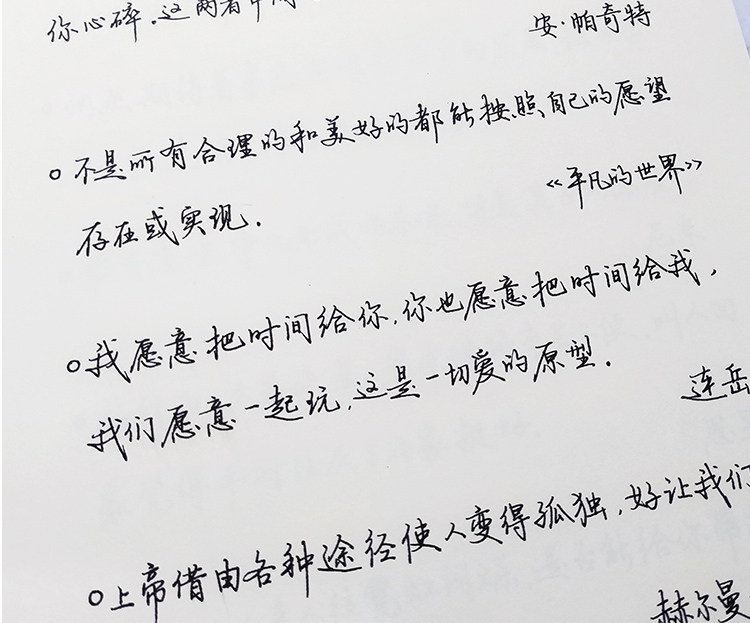 你心碎.这两者中
安·帕奇特
不是所有合理的和美好的都能按照自己的愿望
存在或实现.
《平凡的世界》
我愿意把时间给你,你也愿意把时间给我,
我们愿意一起玩,这是一切爱的原型.
连岳
上帝借由各种途径使人变得孤独,好让我们
赫尔曼